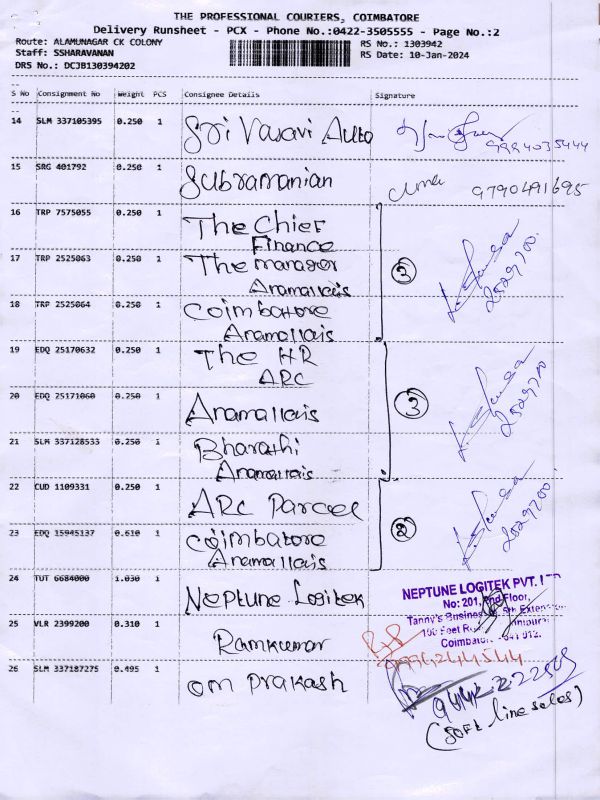 THE PROFESSIONAL COURIERS, COIMBATORE
Delivery Runsheet - PCX - Phone No.:0422-3505555 - Page No.:2
Route: ALAMUNAGAR CK COLONY RS No.: 1303942
Staff: SSHARAVANAN RS Date: 10-Jan-2024
DRS No.: DCJB130394202
S No Consignment No Weight PCS Consignee Details Signature
14 SLM 337105395 0.250 1 Sri Vasavi Auto 9994035444
15 SRG 401792 0.250 1 Subramanian Uma 9790491695
16 TRP 7575055 0.250 1 The Chief
Finance
17 TRP 2525063 0.250 1 The manager
Anamallais
3 2529200
18 TRP 2525064 0.250 1 Coimbatore
Anamallais
19 EDQ 25170632 0.250 1 The HR
ARC
20 EDQ 25171060 0.250 1 Anamallais
3 2529200
21 SLM 337128533 0.250 1 Bharathi
Anamallais
22 CUD 1109331 0.250 1 ARC Parcel
2 2529200
23 EDQ 15945137 0.610 1 Coimbatore
Anamallais
24 TUT 6684000 1.030 1 Neptune Logitek
NEPTUNE LOGITEK PVT.
No: 201, 2nd Floor,
Tanny's Business 5th Extension
100 Feet
Coimbatore 641 012.
25 VLR 2399200 0.310 1 Ramkumar
26 SLM 337187275 0.495 1 Om Prakash
(Soft line sales)